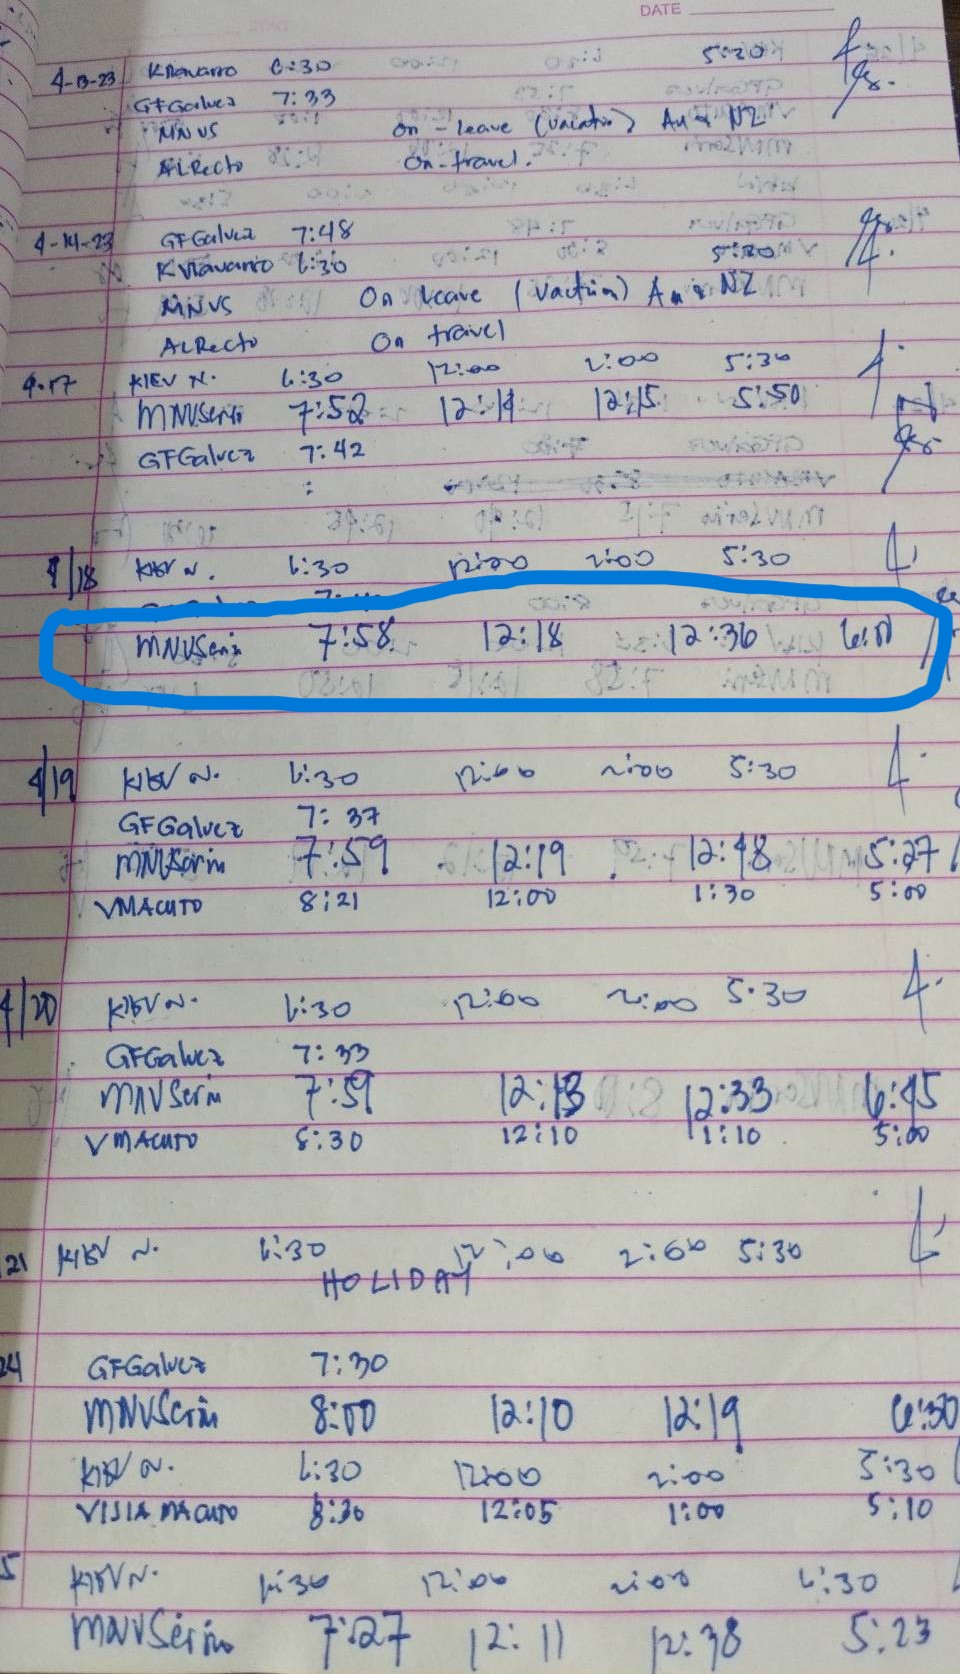 DATE
4-13-23 KNavarro 6:30 5:30
GFGalvez 7:33
MNVS On-leave (vacation) Au & NZ
ALRecto On-travel.
4-14-23 GFGalvez 7:48
KNavarro 6:30 5:30
MNVS On leave (vaction) Au & NZ
ALRecto On travel
4-17 KIEV N. 6:30 12:00 2:00 5:30
MNVSerin 7:52 12:14 12:15 5:50
GFGalvez 7:42
:
4/18 KIEV N. 6:30 12:00 2:00 5:30
MNVSerin 7:58 12:18 12:36
4/19 KIEV N. 6:30 12:00 2:00 5:30
GFGalvez 7:37
MNVSerin 7:59 12:19 12:48 5:27
VMACUTO 8:21 12:00 1:30 5:00
4/20 KIEV N. 6:30 12:00 2:00 5:30
GFGalvez 7:33
MNVSerin 7:59 12:13 12:33 6:45
VMACUTO 8:30 12:10 1:10 5:00
21 KIEV N. 6:30 12:00 2:00 5:30
HOLIDAY
24 GFGalvez 7:30
MNVSerin 8:00 12:10 12:19 6:30
KIEV N. 6:30 12:00 2:00 5:30
VISIA MACUTO 8:30 12:05 1:00 5:10
5 KIEV N. 6:30 12:00 2:00 6:30
MNVSerin 7:27 12:11 12:38 5:23